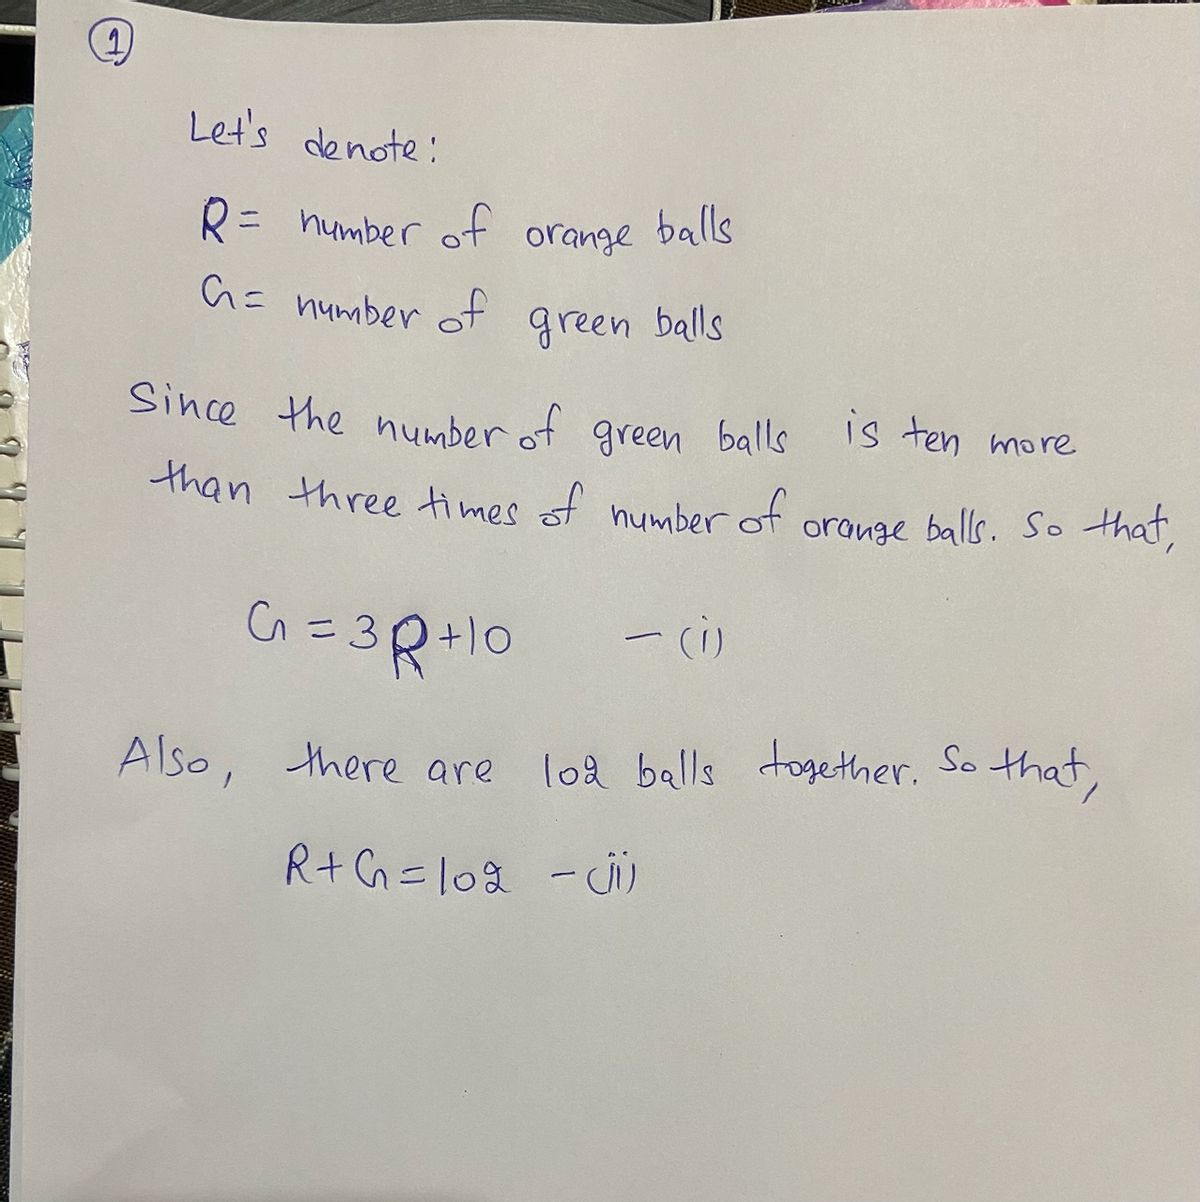 1
Let's denote:
R = number of orange balls
G = number of green balls
Since the number of green balls is ten more
than three times of number of orange balls. So that,
G = 3R+10 - (i)
Also, there are 102 balls together. So that,
R+G=102 - (ii)